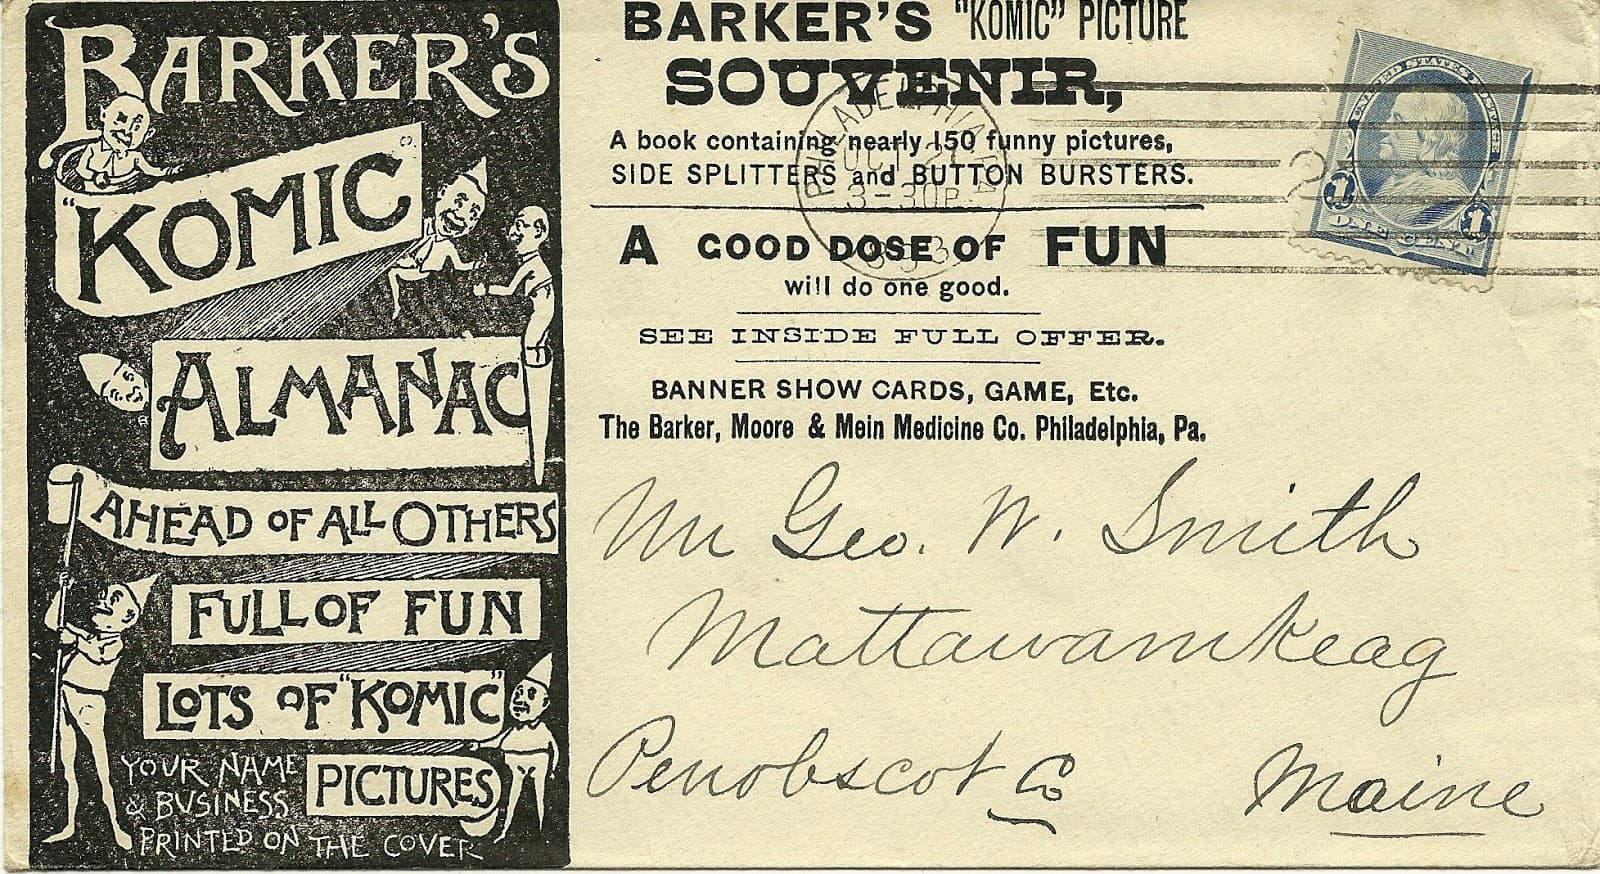 BARKER'S
"KOMIC"
ALMANAC
AHEAD OF ALL OTHERS
FULL OF FUN
LOTS OF "KOMIC"
PICTURES
YOUR NAME
& BUSINESS
PRINTED ON THE COVER
BARKER'S "KOMIC" PICTURE
SOUVENIR,
A book containing nearly 150 funny pictures,
SIDE SPLITTERS and BUTTON BURSTERS.
A GOOD DOSE OF FUN
will do one good.
SEE INSIDE FULL OFFER.
BANNER SHOW CARDS, GAME, Etc.
The Barker, Moore & Mein Medicine Co. Philadelphia, Pa.
PHILADELPHIA PA
OCT
3-30P
UNITED STATES POSTAGE
1 1
ONE CENT
Mr Geo. W. Smith
Mattawamkeag
Penobscot Co Maine